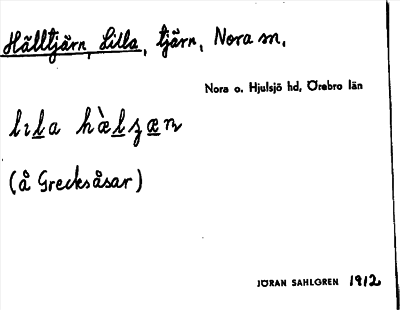 Hälltjärn, Lilla, tjärn, Nora sn.
Nora o. Hjulsjö hd, Örebro län
(å Grecksåsar)
JÖRAN SAHLGREN 1912